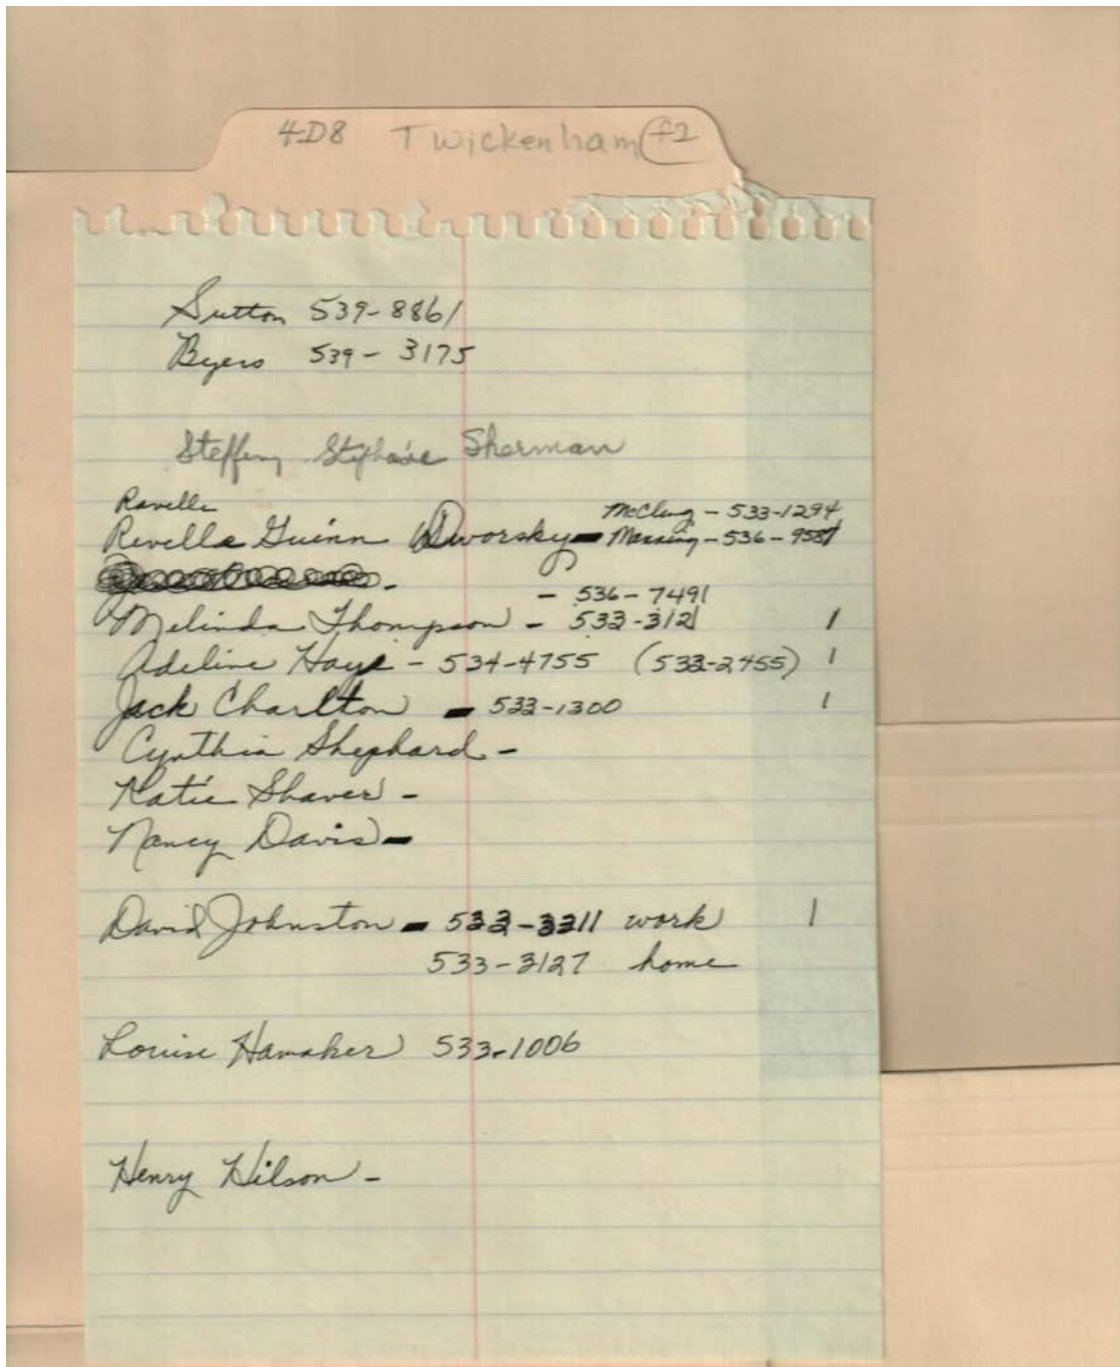 4-D8 Twickenham f2
Sutton 539-8861
Byers 539-3175
Steffeny Stephanie Sherman
Ravelle
McClung - 533-1294
Revelle Guinn Dworsky - Manning - 536-9587
- 536-7491
Melinda Thompson - 533-3121
1
Adeline Hays - 534-4755 (533-2455) 1
Jack Charlton - 533-1300 1
Cynthia Shephard -
Katie Shaver -
Nancy Davis -
David Johnston - 532-3211 work 1
533-3127 home
Louise Hamaker 533-1006
Henry Hilson -